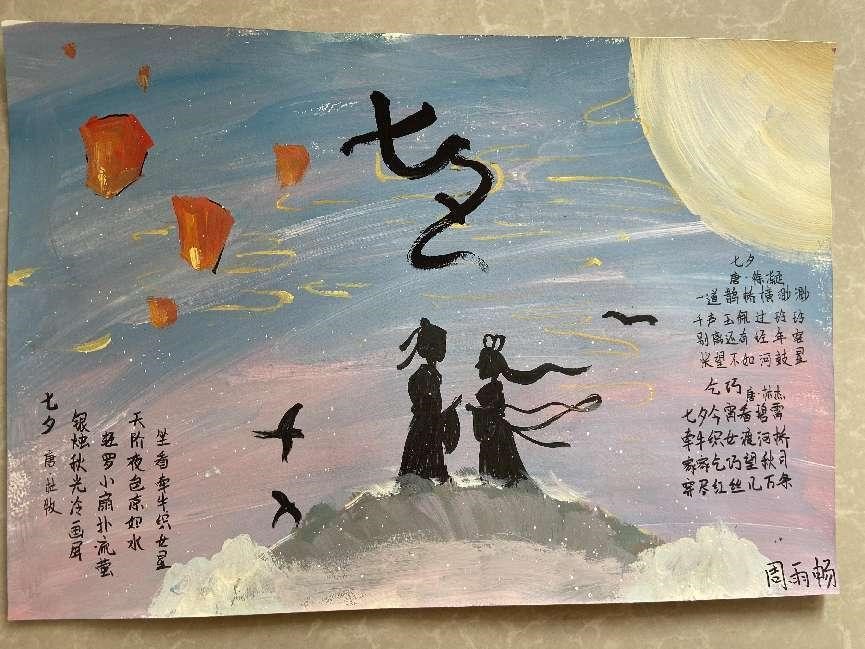 七夕
七夕
唐·徐凝
一道鹊桥横渺渺
千声玉佩过玲玲
别离还有经年客
怅望不如河鼓星
乞巧
唐·林杰
七夕今宵看碧霄
牵牛织女渡河桥
家家乞巧望秋月
穿尽红丝几万条
七夕
唐 杜牧
银烛秋光冷画屏
轻罗小扇扑流萤
天阶夜色凉如水
坐看牵牛织女星
周雨畅